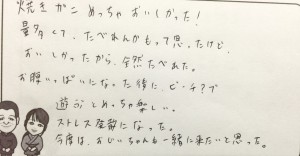 焼きがニ めっちゃおいしかった!
量多くて、たべれんかもって思ったけど、
おいしかったから、全然たべれた。
お腹いっぱいになった後に、ビーチで
遊ぶとめっちゃ楽しい。
ストレス発散になった。
今度は、おじいちゃんも一緒に来たいと思った。